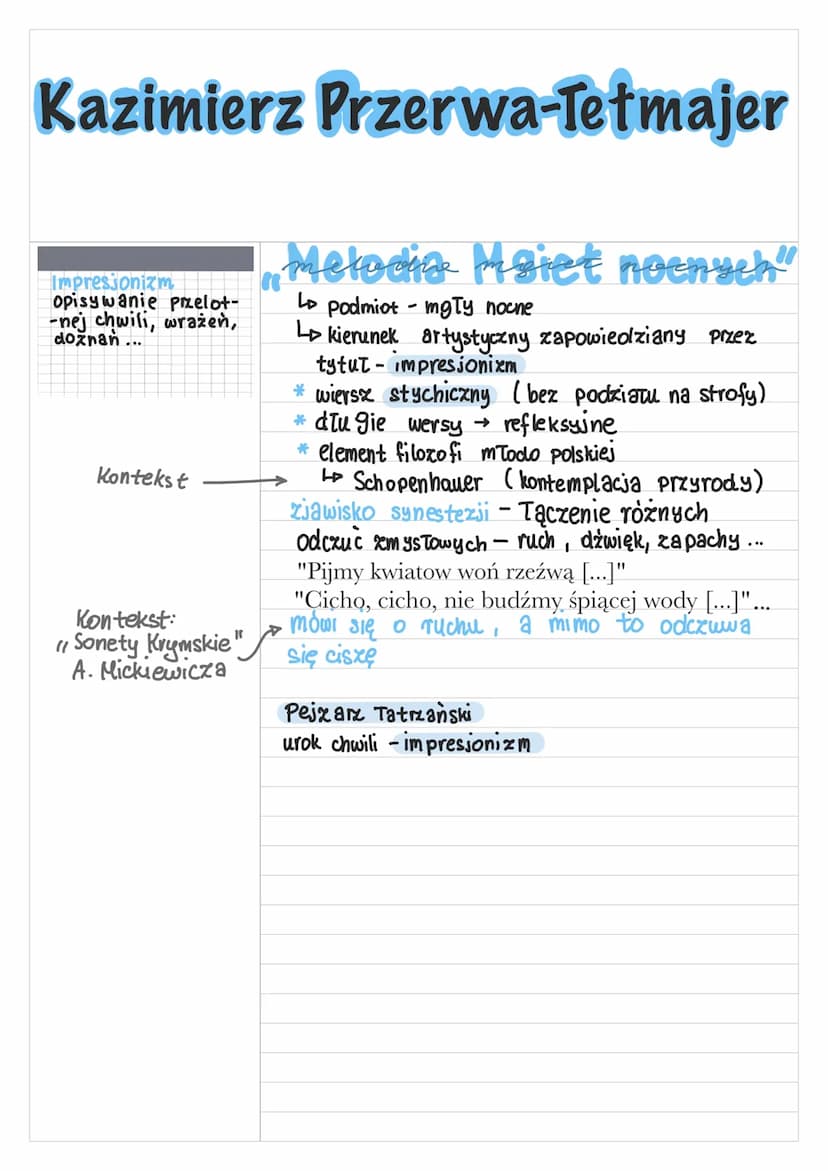 Kazimierz Przerwa-Tetmajer
Impresjonizm
opisywanie przelot-
-nej chwili, wrażeń,
doznań...
"Melodia Mgieł nocnych"
↳ podmiot - mgły nocne
↳ kierunek artystyczny zapowiedziany przez
tytuł - impresjonizm
* wiersz stychiczny (bez podziału na strofy)
* długie wersy → refleksyjne
* element filozofi młodo polskiej
Kontekst
↳ Schopenhauer (kontemplacja przyrody)
zjawisko synestezji - łączenie różnych
odczuć zmysłowych - ruch, dźwięk, zapachy ...
"Pijmy kwiatow woń rzeźwą [...]"
"Cicho, cicho, nie budźmy śpiącej wody [...]"...
Kontekst:
"Sonety Krymskie"
A. Mickiewicza
mówi się o ruchu, a mimo to odczuwa
się ciszę
Pejzarz Tatrzański
urok chwili - impresjonizm